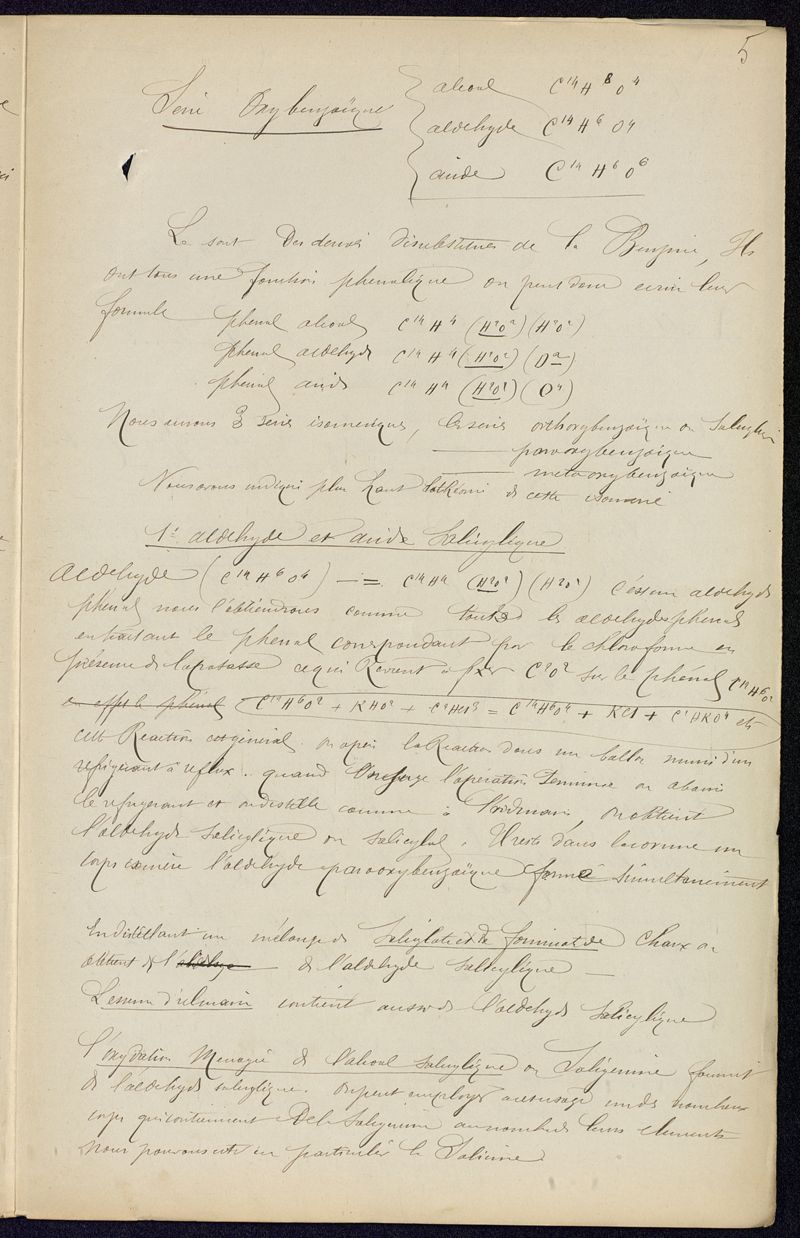 5
Série Oxybenzoïque
alcool C¹⁴ H⁸ O⁴
aldehyde C¹⁴ H⁶ O⁴
acide C¹⁴ H⁶ O⁶
Ce sont des derivés disubstitués de la Benzine, Ils
ont tous une fonction phenolique on peut donc ecrire leur
formule phenol alcool C¹⁴ H⁴ (H²O²) (H²O²)
phenol aldehyde C¹⁴ H⁴ (H²O²) (O²)
phenol acide C¹⁴ H⁴ (H²O²) (O⁴)
Nous aurons 3 series isomeriques, la serie orthoxybenzoïque ou Salicylique
—— paraoxybenzoïque
—— metaoxybenzoïque
Nous avons indiqué plus haut de cette isomerie
1º aldehyde et acide Salicylique
Aldehyde (C¹⁴ H⁶ O⁴) — = C¹⁴ H⁴ (H²O²) (H²O²) C'est un aldehyde
phenol nous l'obtiendrons comme toutes les aldehydes phenols
en traitant le phenol correspondant par le chloroforme en
présence de la potasse ce qui Revient à fixer C²O² sur le phénol C¹²H⁶O²
en effet le phénol C¹²H⁶O² + KHO² + C²HCl³ = C¹⁴H⁶O⁴ + KCl + C²HKO⁴ etc
cette Reaction est général. on opère la Reaction dans un ballon muni d'un
refrigerant à reflux. quand l'opération terminée on
le refrigerant et on distille comme à l'ordinaire, on obtient
l'aldehyde salicylique ou salicylol. Il reste dans la cornue un
corps isomère l'aldehyde paraoxybenzoïque formé simultanément
En distillant un mélange de salicylate et de formiate de Chaux on
obtient de l' de l'aldehyde salicylique —
L'essence d'ulmaire contient aussi de l'aldehyde salicylique
l'oxydation Menagée de l'alcool salicylique ou Saligenine fournit
de l'aldehyde salicylique. On peut employer un des nombreux
corps qui contiennent De la Saligenine au nombre de leurs elements
Nous pouvons citer en particulier la Salicine